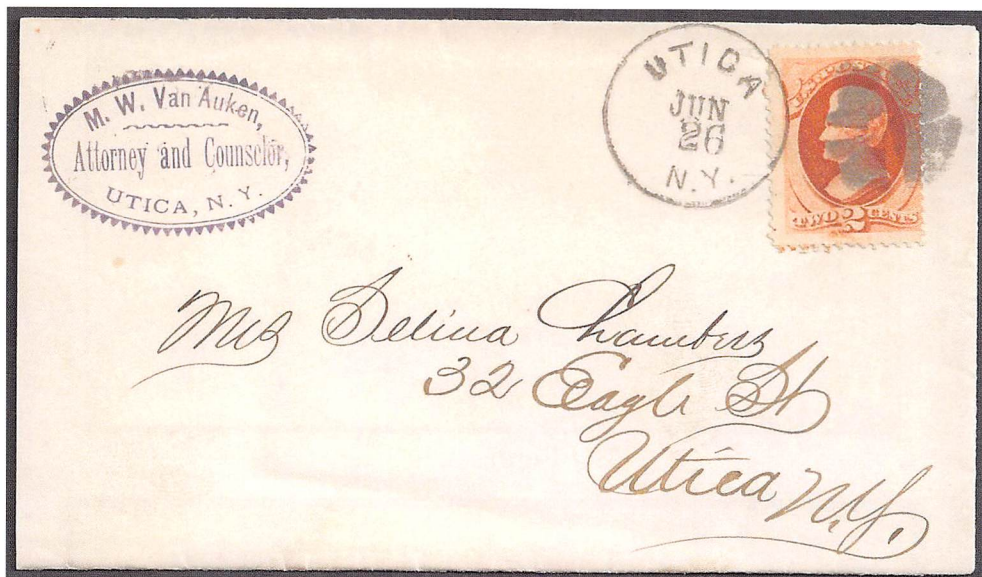 M. W. Van Auken,
Attorney and Counselor,
UTICA, N. Y.
UTICA
JUN
26
N.Y.
TWO 2 CENTS
Mrs Selina Chambers
32 Eagle St
Utica N.Y.